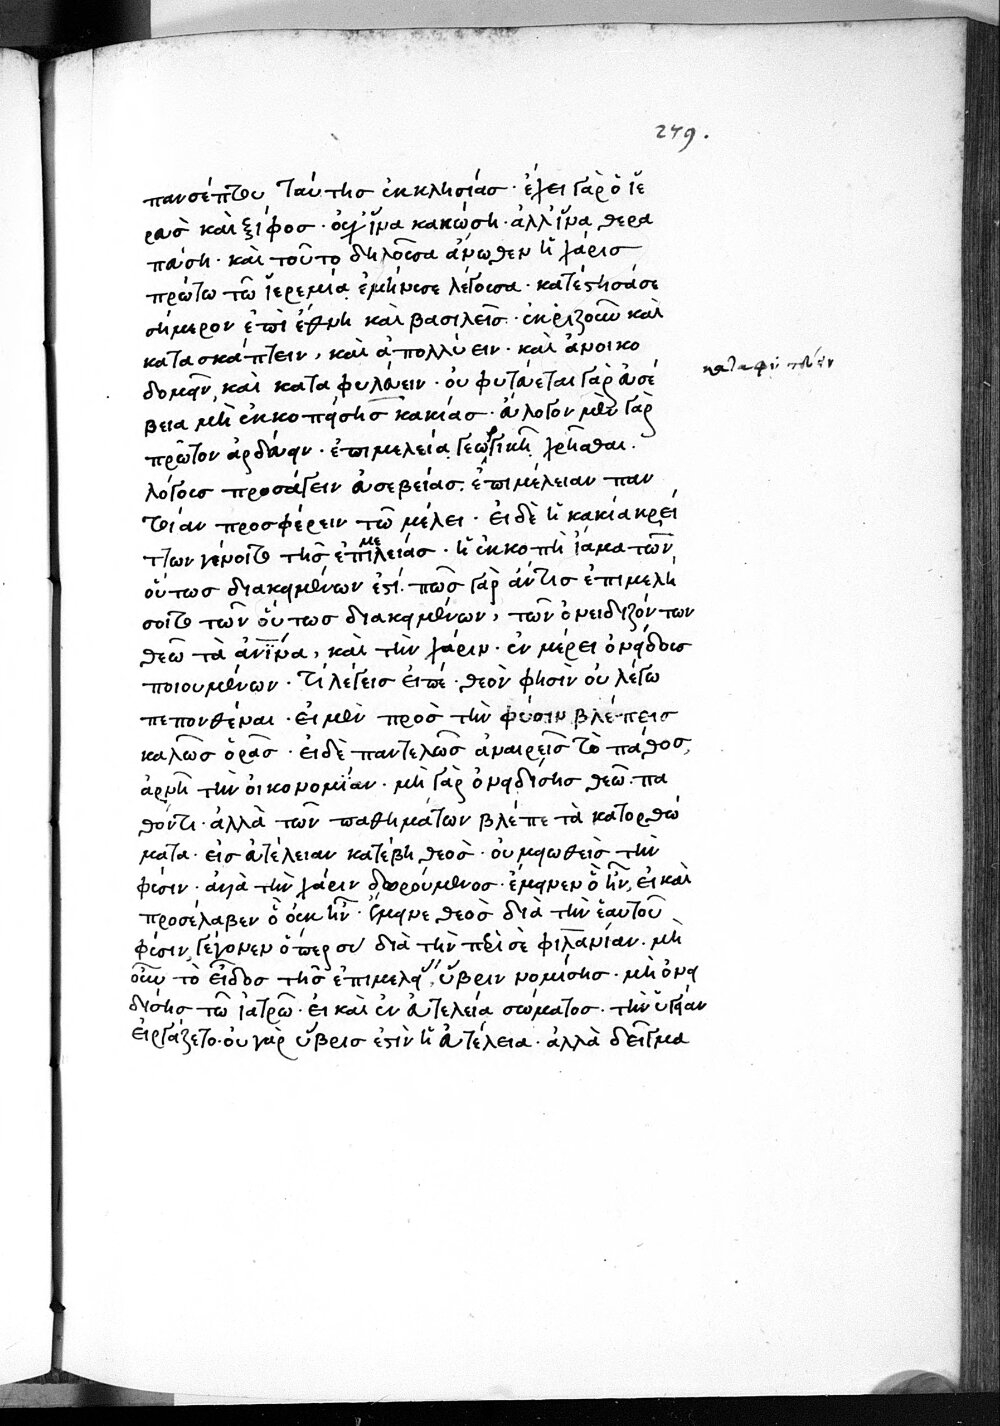 249.
πανσέπτου ταύτης ἐκκλησίας · ἔχει γὰρ ὁ ἱε
ρεὺς καὶ ξίφος · οὐχ ἵνα κακώσῃ · ἀλλ' ἵνα θερα
πεύσῃ · καὶ τοῦτο δηλοῦσα ἄνωθεν ἡ χάρις
πρώτω τῶ ἱερεμία ἐμήνυσε λέγουσα · κατέστησά σε
σήμερον ἐπὶ ἔθνη καὶ βασιλείας · ἐκριζοῦν καὶ
κατασκάπτειν, καὶ ἀπολλύειν · καὶ ἀνοικο
δομεῖν, καὶ καταφυτεύειν · οὐ φυτεύεται γὰρ εὐσέ
βεια μὴ ἐκκοπείσης κακίας · ἄλογον μὲν γὰρ
πρῶτον ἀρδεύειν · ἐπιμελεία γεωργικῆ χρῆσθαι ·
λόγους προσάγειν εὐσεβείας · ἐπιμέλειαν παν
τοίαν προσφέρειν τῶ μέλει · εἰ δὲ ἡ κακία κρεί
ττων γένοιτο τῆς ἐπιμελείας · ἡ ἐκκοπὴ ἴαμα τῶν
οὕτως διακειμένων ἐστί · πῶς γὰρ ἄν τις ἐπιμελή
σοιτο τῶν οὕτως διακειμένων, τῶν ὀνειδιζόντων
θεῶ τὰ ἀνῖνα, καὶ τὴν χάριν · ἐν μέρει ὀνείδους
ποιουμένων · τί λέγεις εἰπέ · θεὸν φησὶν οὐ λέγω
πεπονθέναι · εἰ μὲν πρὸς τὴν φύσιν βλέπεις
καλῶς ὁρᾶς · εἰ δὲ παντελῶς ἀναιρεῖς τὸ πάθος,
ἀρνῆ τὴν οἰκονομίαν · μὴ γὰρ ὀνειδίσης θεῶ πα
θόντι · ἀλλὰ τῶν παθημάτων βλέπε τὰ κατορθώ
ματα · εἰς εὐτέλειαν κατέβη θεὸς · οὐ μειωθεὶς τὴν
φύσιν · ἀλλὰ τὴν χάριν δωρούμενος · ἔμεινεν ὃ ἦν, εἰ καὶ
προσέλαβεν ὃ οὐκ ἦν · ἔμεινε θεὸς διὰ τὴν ἑαυτοῦ
φύσιν, γέγονεν ὅπερ σὺ διὰ τὴν περὶ σὲ φιλανίαν · μὴ
οὖν τὸ εἶδος τῆς ἐπιμελεί, ὕβριν νομίσης · μὴ ὀνει
δίσης τῶ ἰατρῶ · εἰ καὶ ἐν εὐτελεία σώματος · τὴν ὑγείαν
εἰργάζετο · οὐ γὰρ ὕβρις ἐστὶν ἡ εὐτέλεια · ἀλλὰ δεῖγμα
καταφυτεύειν